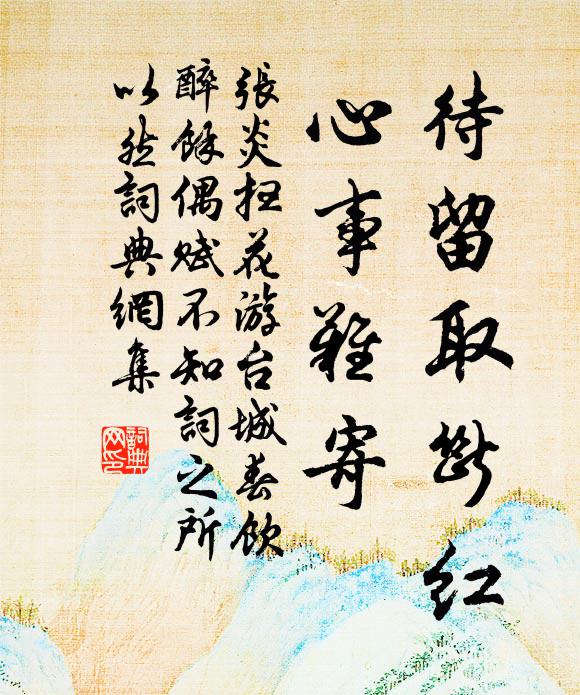 待留取斷紅
心事難寄
張炎掃花游台城春飲
醉餘偶賦不知詞之所
以然詞典網集
詞典
网印